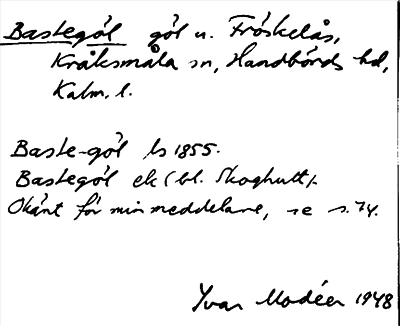 Bastegöl göl u. Fröskelås,
Kråksmåla sn, Handbörds hd,
Kalm. l.
Baste-göl ls 1855.
Bastegöl ek (bl. Skoghult).
Okänt för min meddelare, se s. 74.
Yvar Modéer 1948